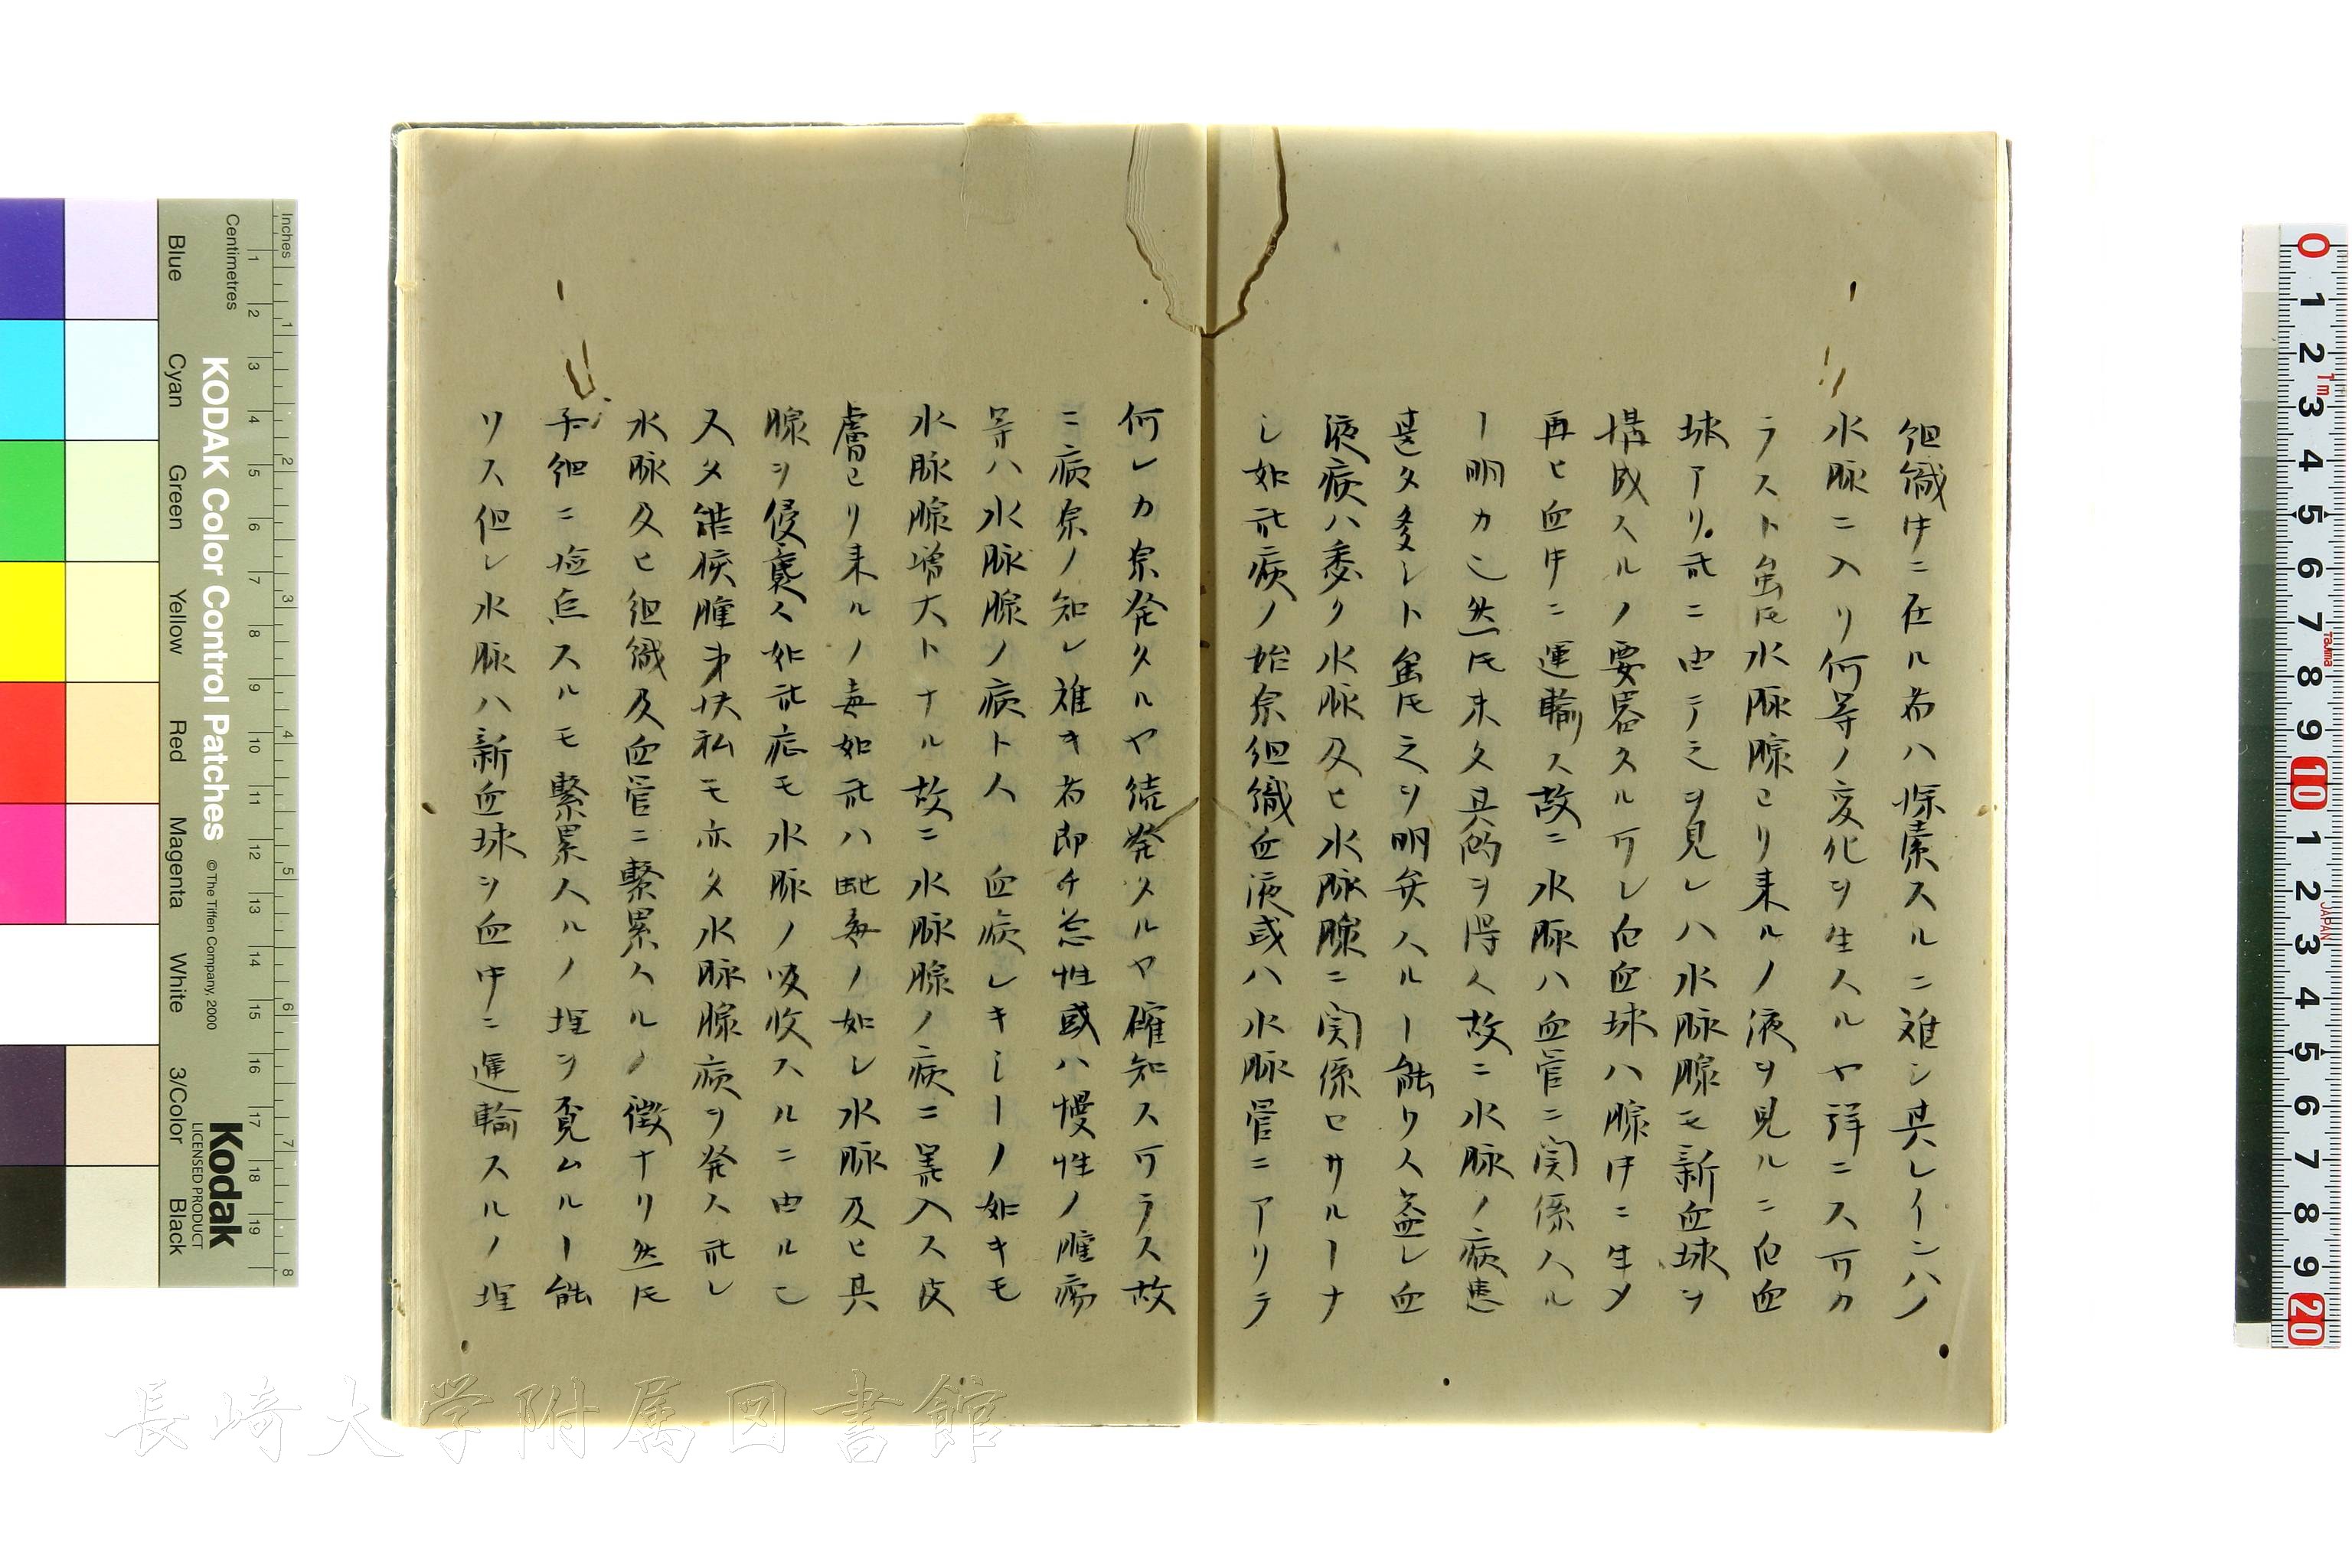 組織中ニ在ル者ハ探索スルニ難シ其レインハノ
水脈ニ入リ何等ノ変化ヲ生スルヤ詳ニス可カ
ラスト虽𪜈水脈腺ヨリ来ルノ液ヲ見ルニ白血
球アリ。此ニ由テ之ヲ見レハ水脈腺モ新血球ヲ
搆成スルノ要器タル可シ白血球ハ腺中ニ生メ
再ヒ血中ニ運輸ス故ニ水脈ハ血管ニ関係スル
ヿ明カ也然𪜈未タ具的ヲ得ス故ニ水脈ノ病患
甚タ多シト虽𪜈之ヲ明弁スルヿ能ワス蓋シ血
液病ハ悉ク水脈及ヒ水脈腺ニ関係セサルヿナ
シ如此病ノ始原組織血液或ハ水脈管ニアリテ
何レカ原発タルヤ続発タルヤ確知ス可ラス故
ニ病原ノ知レ難キ者即チ急性或ハ慢性ノ腫瘍
等ハ水脈腺ノ病ト人 血病レキシーノ如キモ
水脈腺増大トナル故ニ水脈腺ノ病ニ算入ス皮
膚ヨリ来ルノ毒如此ハ虵毒ノ如シ水脈及ヒ其
腺ヲ侵襲ス如此症モ水脈ノ吸收スルニ由ル也
又タ能候腫弟扶私モ亦タ水脈腺病ヲ発ス此レ
水脈及ヒ組織及血管ニ繋累スルノ徴ナリ然𪜈
予細ニ撿点スルモ繋累スルノ理ヲ覓ムルヿ能
ワス但シ水脈ハ新血球ヲ血中ニ運輸スルノ理
KODAK Color Control Patches
© The Tiffen Company, 2000
Kodak
LICENSED PRODUCT
Inches
Centimetres
Blue Cyan Green Yellow Red Magenta White 3/Color Black
長崎大学附属図書館